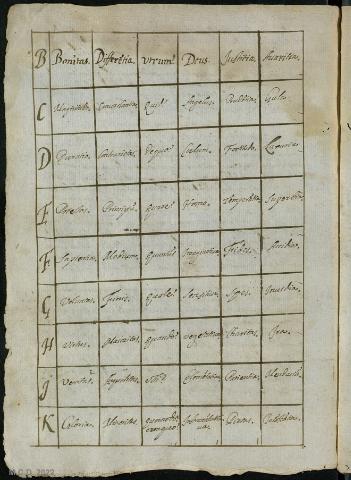 B Bonitas. Differētia. Vtrum? Deus. Justitia. Auaritia.
C Magnitudo. Concordantia. Quid? Angelus. Prudētia. Gula.
D Duratio. Contrarietas. Dequo? Coelum. Fortitudo. Luxuria.
E Potestas. Principiū. Quare? Homo. Temperātia. Superbia.
F Sapientia. Medium. Quantū? Imaginatiua. Fides. Accidia.
G Voluntas. Finis. Quale? Sensitiua. Spes. Inuidia.
H Virtus. Maioritas. Quando? Vegetatiua. Charitas. Ira.
J Veritas. Equalitas. Vbi? Elemētatiua. Patientia. Mendaciū.
K Gloria. Minoritas. quomodo? cumquo? Instrumētatiua. Pietas.
M.C.D. 2022